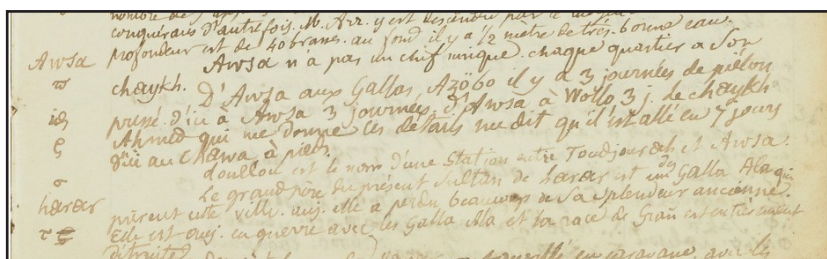 conquérais d'autrefois. M. Arr. y est descendu par
profondeur est de 40 brasses. au fond il y a 1/2 mètre de très bonne eau.
Awsa Awsa n'a pas un chef unique. chaque quartier a son
chaykh. D'Awsa aux Gallas, Azöbo il y a 3 journées de piéton
pressé. d'ici à Awsa 3 journées, d'Awsa à Wollo, 3 j. le chaykh
Ahmed qui me donne ces détails me dit qu'il est allé en 7 jours
d'ici au Chawa à pied.
Doullou est le nom d'une Station entre Toudjourah et Awsa.
harar Le grand père du présent Sultan de harar est un des Galla Ala qui
prirent cette ville. auj. elle a perdu beaucoup de sa splendeur ancienne.
Elle est auj. en guerre avec les Galla Ala et la race de Grañ est entièrement
détruite.
en caravane, avec les